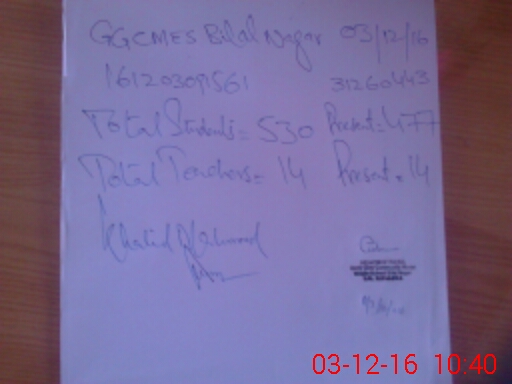 GGCMES Bilal Nagar 03/12/16
161203091561 31260443
Total Students = 530 Present = 477
Total Teachers = 14 Present = 14
Khalid Mehmood
03-12-16 10:40